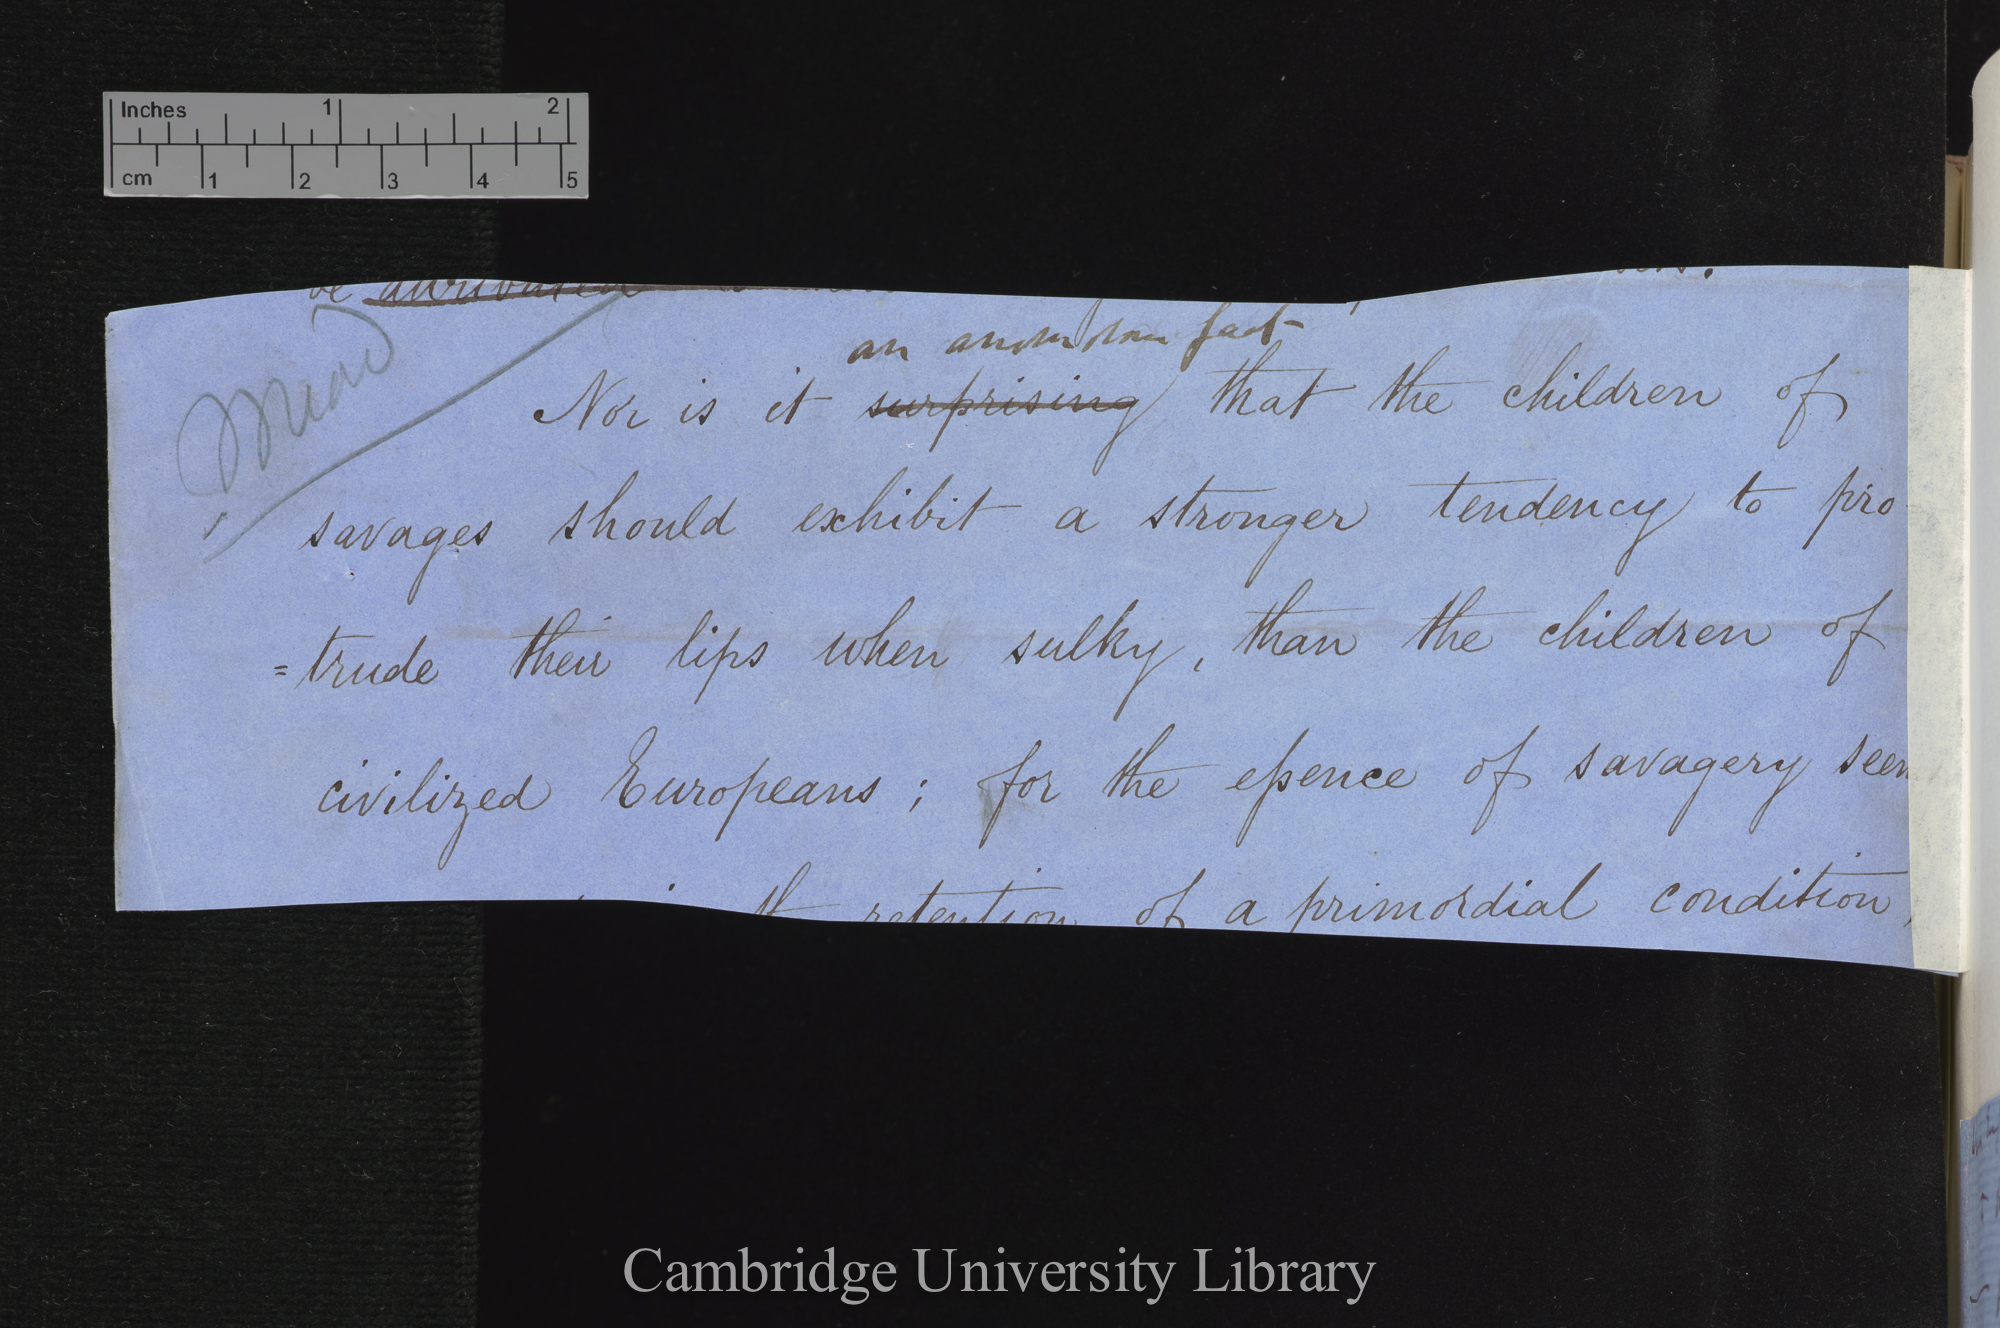 Inches 1 2
cm 1 2 3 4 5
be attributed
an anomalous fact
Nor is it surprising that the children of
savages should exhibit a stronger tendency to pro-
=trude their lips when sulky, than the children of
civilized Europeans; for the essence of savagery seem
the retention of a primordial condition,
Cambridge University Library